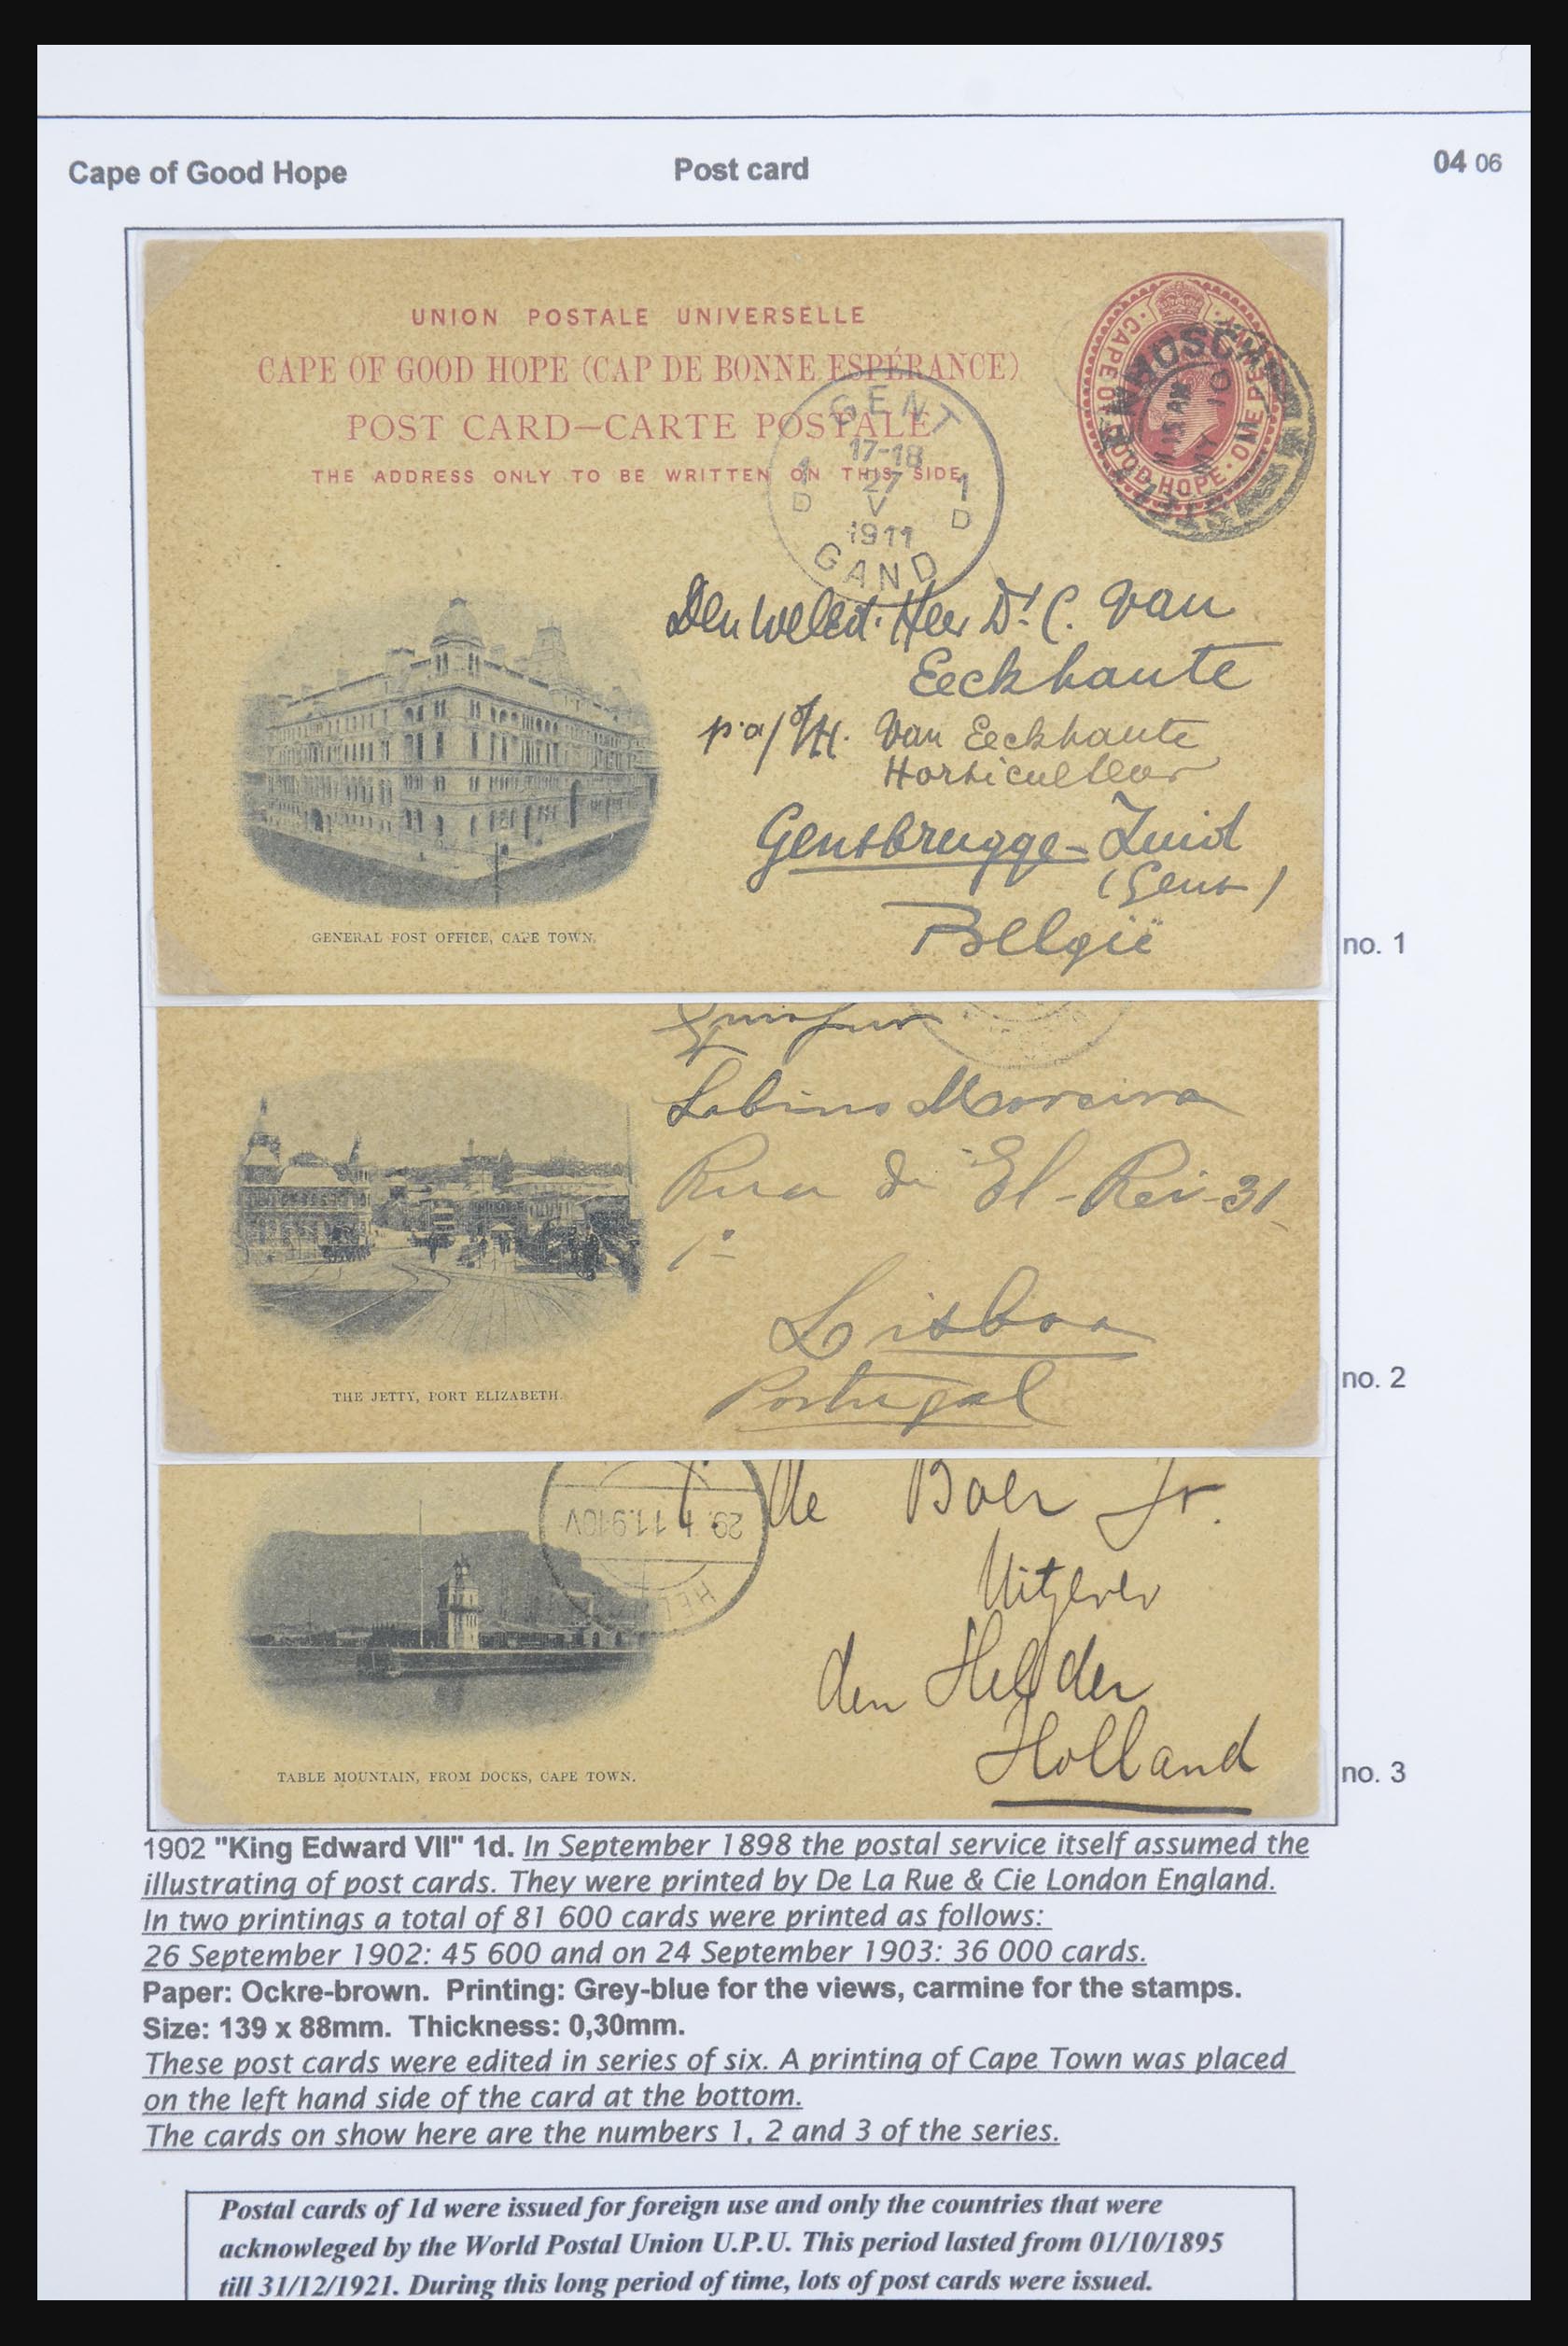 Cape of Good Hope
Post card
04 06
UNION POSTALE UNIVERSELLE
CAPE OF GOOD HOPE (CAP DE BONNE ESPÉRANCE)
POST CARD—CARTE POSTALE
THE ADDRESS ONLY TO BE WRITTEN ON THIS SIDE
CAPE OF GOOD HOPE · ONE PENNY
GENT
17-18
1 27 1
D V D
1911
GAND
11 15 AM
MY 10
Den Weled. Heer Dr. C. van
Eeckhaute
p.a/ d/H. Van Eeckhaute
Horticulteur
Gentbrugge-Zuid
(Gent)
België
GENERAL POST OFFICE, CAPE TOWN.
no. 1
Sabino Moreira
Rua d' El-Rei-31
1º
Lisboa
Portugal
THE JETTY, PORT ELIZABETH.
no. 2
de Boer Jr.
Uitgever
den Helder
Holland
29. 1 11.9-10V
HEL
TABLE MOUNTAIN, FROM DOCKS, CAPE TOWN.
no. 3
1902 "King Edward VII" 1d. In September 1898 the postal service itself assumed the
illustrating of post cards. They were printed by De La Rue & Cie London England.
In two printings a total of 81 600 cards were printed as follows:
26 September 1902: 45 600 and on 24 September 1903: 36 000 cards.
Paper: Ockre-brown. Printing: Grey-blue for the views, carmine for the stamps.
Size: 139 x 88mm. Thickness: 0,30mm.
These post cards were edited in series of six. A printing of Cape Town was placed
on the left hand side of the card at the bottom.
The cards on show here are the numbers 1, 2 and 3 of the series.
Postal cards of 1d were issued for foreign use and only the countries that were
acknowleged by the World Postal Union U.P.U. This period lasted from 01/10/1895
till 31/12/1921. During this long period of time, lots of post cards were issued.